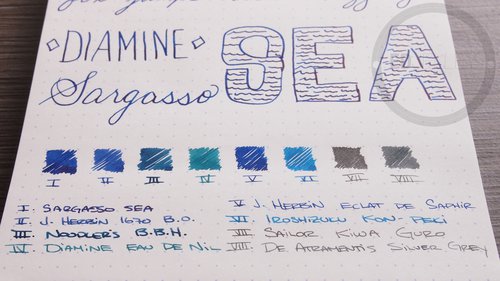 ◇ DIAMINE ◇
Sargasso SEA
I II III IV V VI VII VIII
I. SARGASSO SEA
II. J. HERBIN 1670 B.O.
III. NOODLER'S B.B.H.
IV. DIAMINE EAU DE NIL
V. J. HERBIN ECLAT DE SAPHIR
VI. IROSHIZUKU KON-PEKI
VII. SAILOR KIWA GURO
VIII. DE ATRAMENTIS SILVER GREY